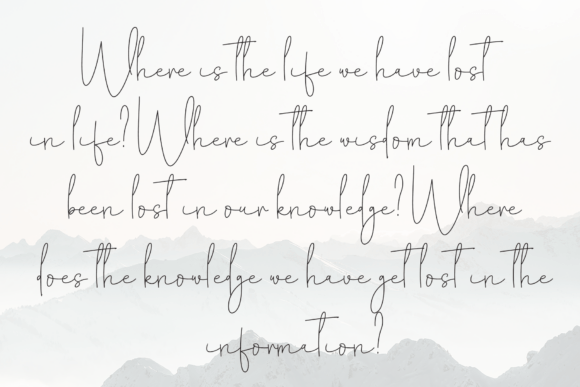 Where is the life we have lost
in life? Where is the wisdom that has
been lost in our knowledge? Where
does the knowledge we have get lost in the
information?